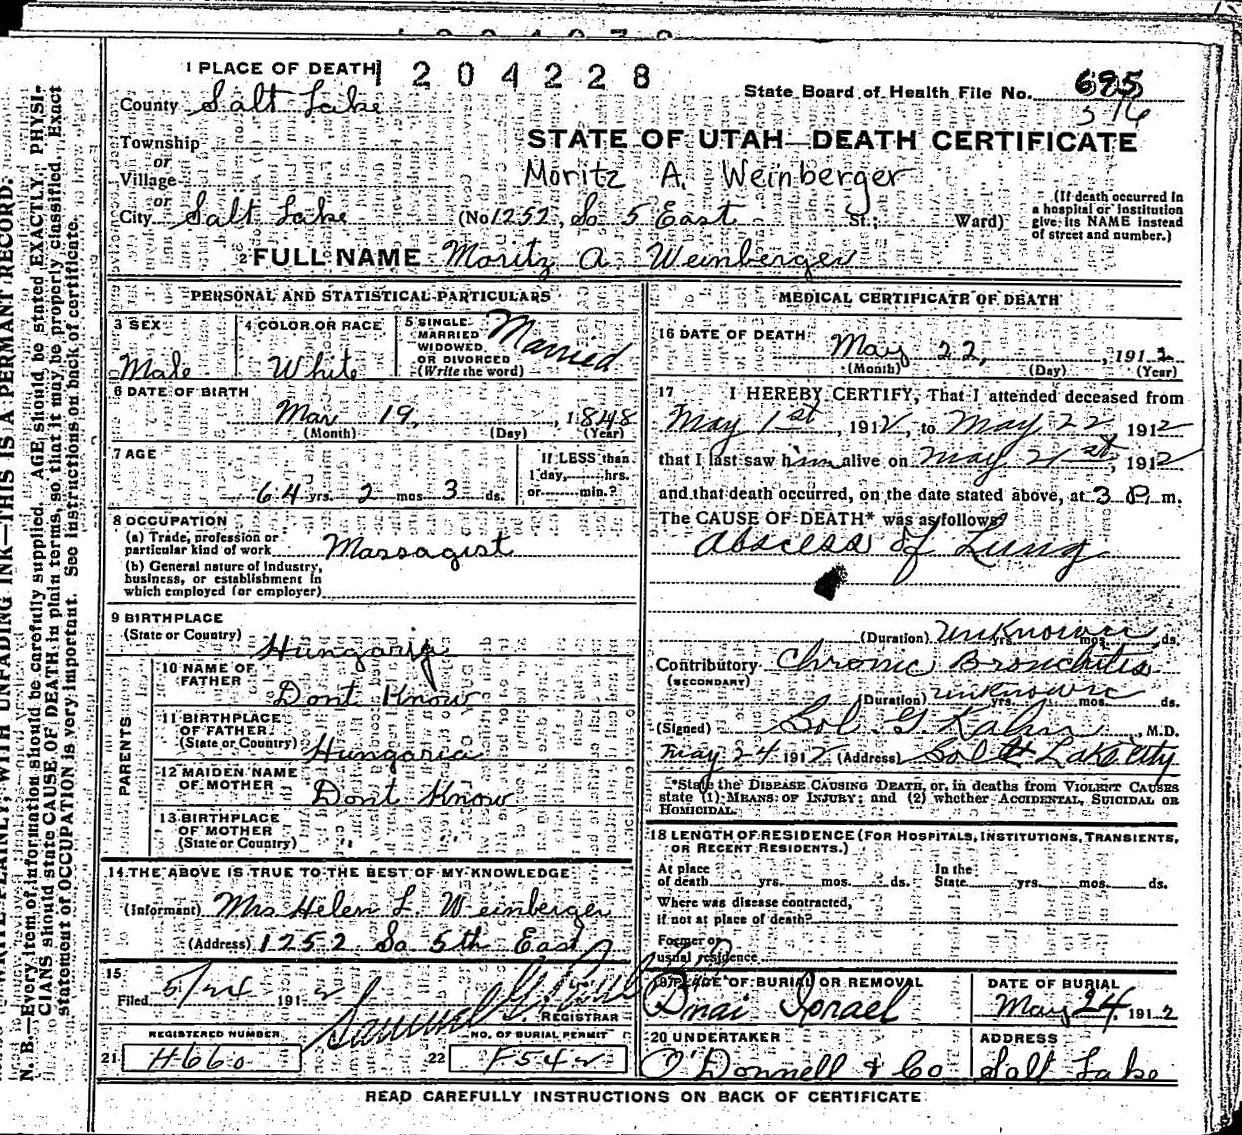 1 PLACE OF DEATH
1204228
County Salt Lake
State Board of Health File No. 695
516
Township
or
Village
or
STATE OF UTAH—DEATH CERTIFICATE
Moritz A. Weinberger
City Salt Lake (No 1252, So 5 East St.; Ward)
(If death occurred in
a hospital or institution
give its NAME instead
of street and number.)
2 FULL NAME Moritz A Weinberger
PERSONAL AND STATISTICAL PARTICULARS
3 SEX
Male
4 COLOR OR RACE
White
5 SINGLE
MARRIED
WIDOWED
OR DIVORCED
(Write the word)
Married
6 DATE OF BIRTH
Mar 19, 1848
(Month) (Day) (Year)
7 AGE
64 yrs. 2 mos 3 ds.
If LESS than
1 day, hrs.
or min.?
8 OCCUPATION
(a) Trade, profession or
particular kind of work Massagist
(b) General nature of industry,
business, or establishment in
which employed (or employer)
9 BIRTHPLACE
(State or Country)
Hungaria
PARENTS
10 NAME OF
FATHER
Dont Know
11 BIRTHPLACE
OF FATHER
(State or Country) Hungaria
12 MAIDEN NAME
OF MOTHER
Dont Know
13 BIRTHPLACE
OF MOTHER
(State or Country) " "
14 THE ABOVE IS TRUE TO THE BEST OF MY KNOWLEDGE
(Informant) Mrs Helen L. Weinberger
(Address) 1252 So 5th East
15
Filed 5/24 1912 Samuel G.
REGISTRAR
REGISTERED NUMBER
21 H660
NO. OF BURIAL PERMIT
22 F542
MEDICAL CERTIFICATE OF DEATH
16 DATE OF DEATH
May 22, 1912
(Month) (Day) (Year)
17 I HEREBY CERTIFY, That I attended deceased from
May 1st, 1912, to May 22 1912
that I last saw him alive on May 21st, 1912
and that death occurred, on the date stated above, at 3 P m.
The CAUSE OF DEATH* was as follows:
Abscess of Lung
(Duration) unknown yrs. mos. ds.
Contributory Chronic Bronchitis
(SECONDARY)
(Duration) unknown yrs. mos. ds.
(Signed) Sol. G Kahn, M.D.
May 24 1912 (Address) Salt Lake City
*State the DISEASE CAUSING DEATH, or, in deaths from VIOLENT CAUSES
state (1) MEANS OF INJURY; and (2) whether ACCIDENTAL, SUICIDAL OR
HOMICIDAL.
18 LENGTH OF RESIDENCE (FOR HOSPITALS, INSTITUTIONS, TRANSIENTS,
OR RECENT RESIDENTS.)
At place
of death yrs. mos. ds.
In the
State yrs. mos. ds.
Where was disease contracted,
if not at place of death?
Former or
usual residence
19 PLACE OF BURIAL OR REMOVAL
Bnai Israel
DATE OF BURIAL
May 24, 1912
20 UNDERTAKER
O'Donnell & Co
ADDRESS
Salt Lake
READ CAREFULLY INSTRUCTIONS ON BACK OF CERTIFICATE
WRITE PLAINLY, WITH UNFADING INK—THIS IS A PERMANT RECORD.
N. B.—Every item of information should be carefully supplied. AGE should be stated EXACTLY. PHYSI-
CIANS should state CAUSE OF DEATH in plain terms, so that it may be properly classified. Exact
statement of OCCUPATION is very important. See instructions on back of certificate.